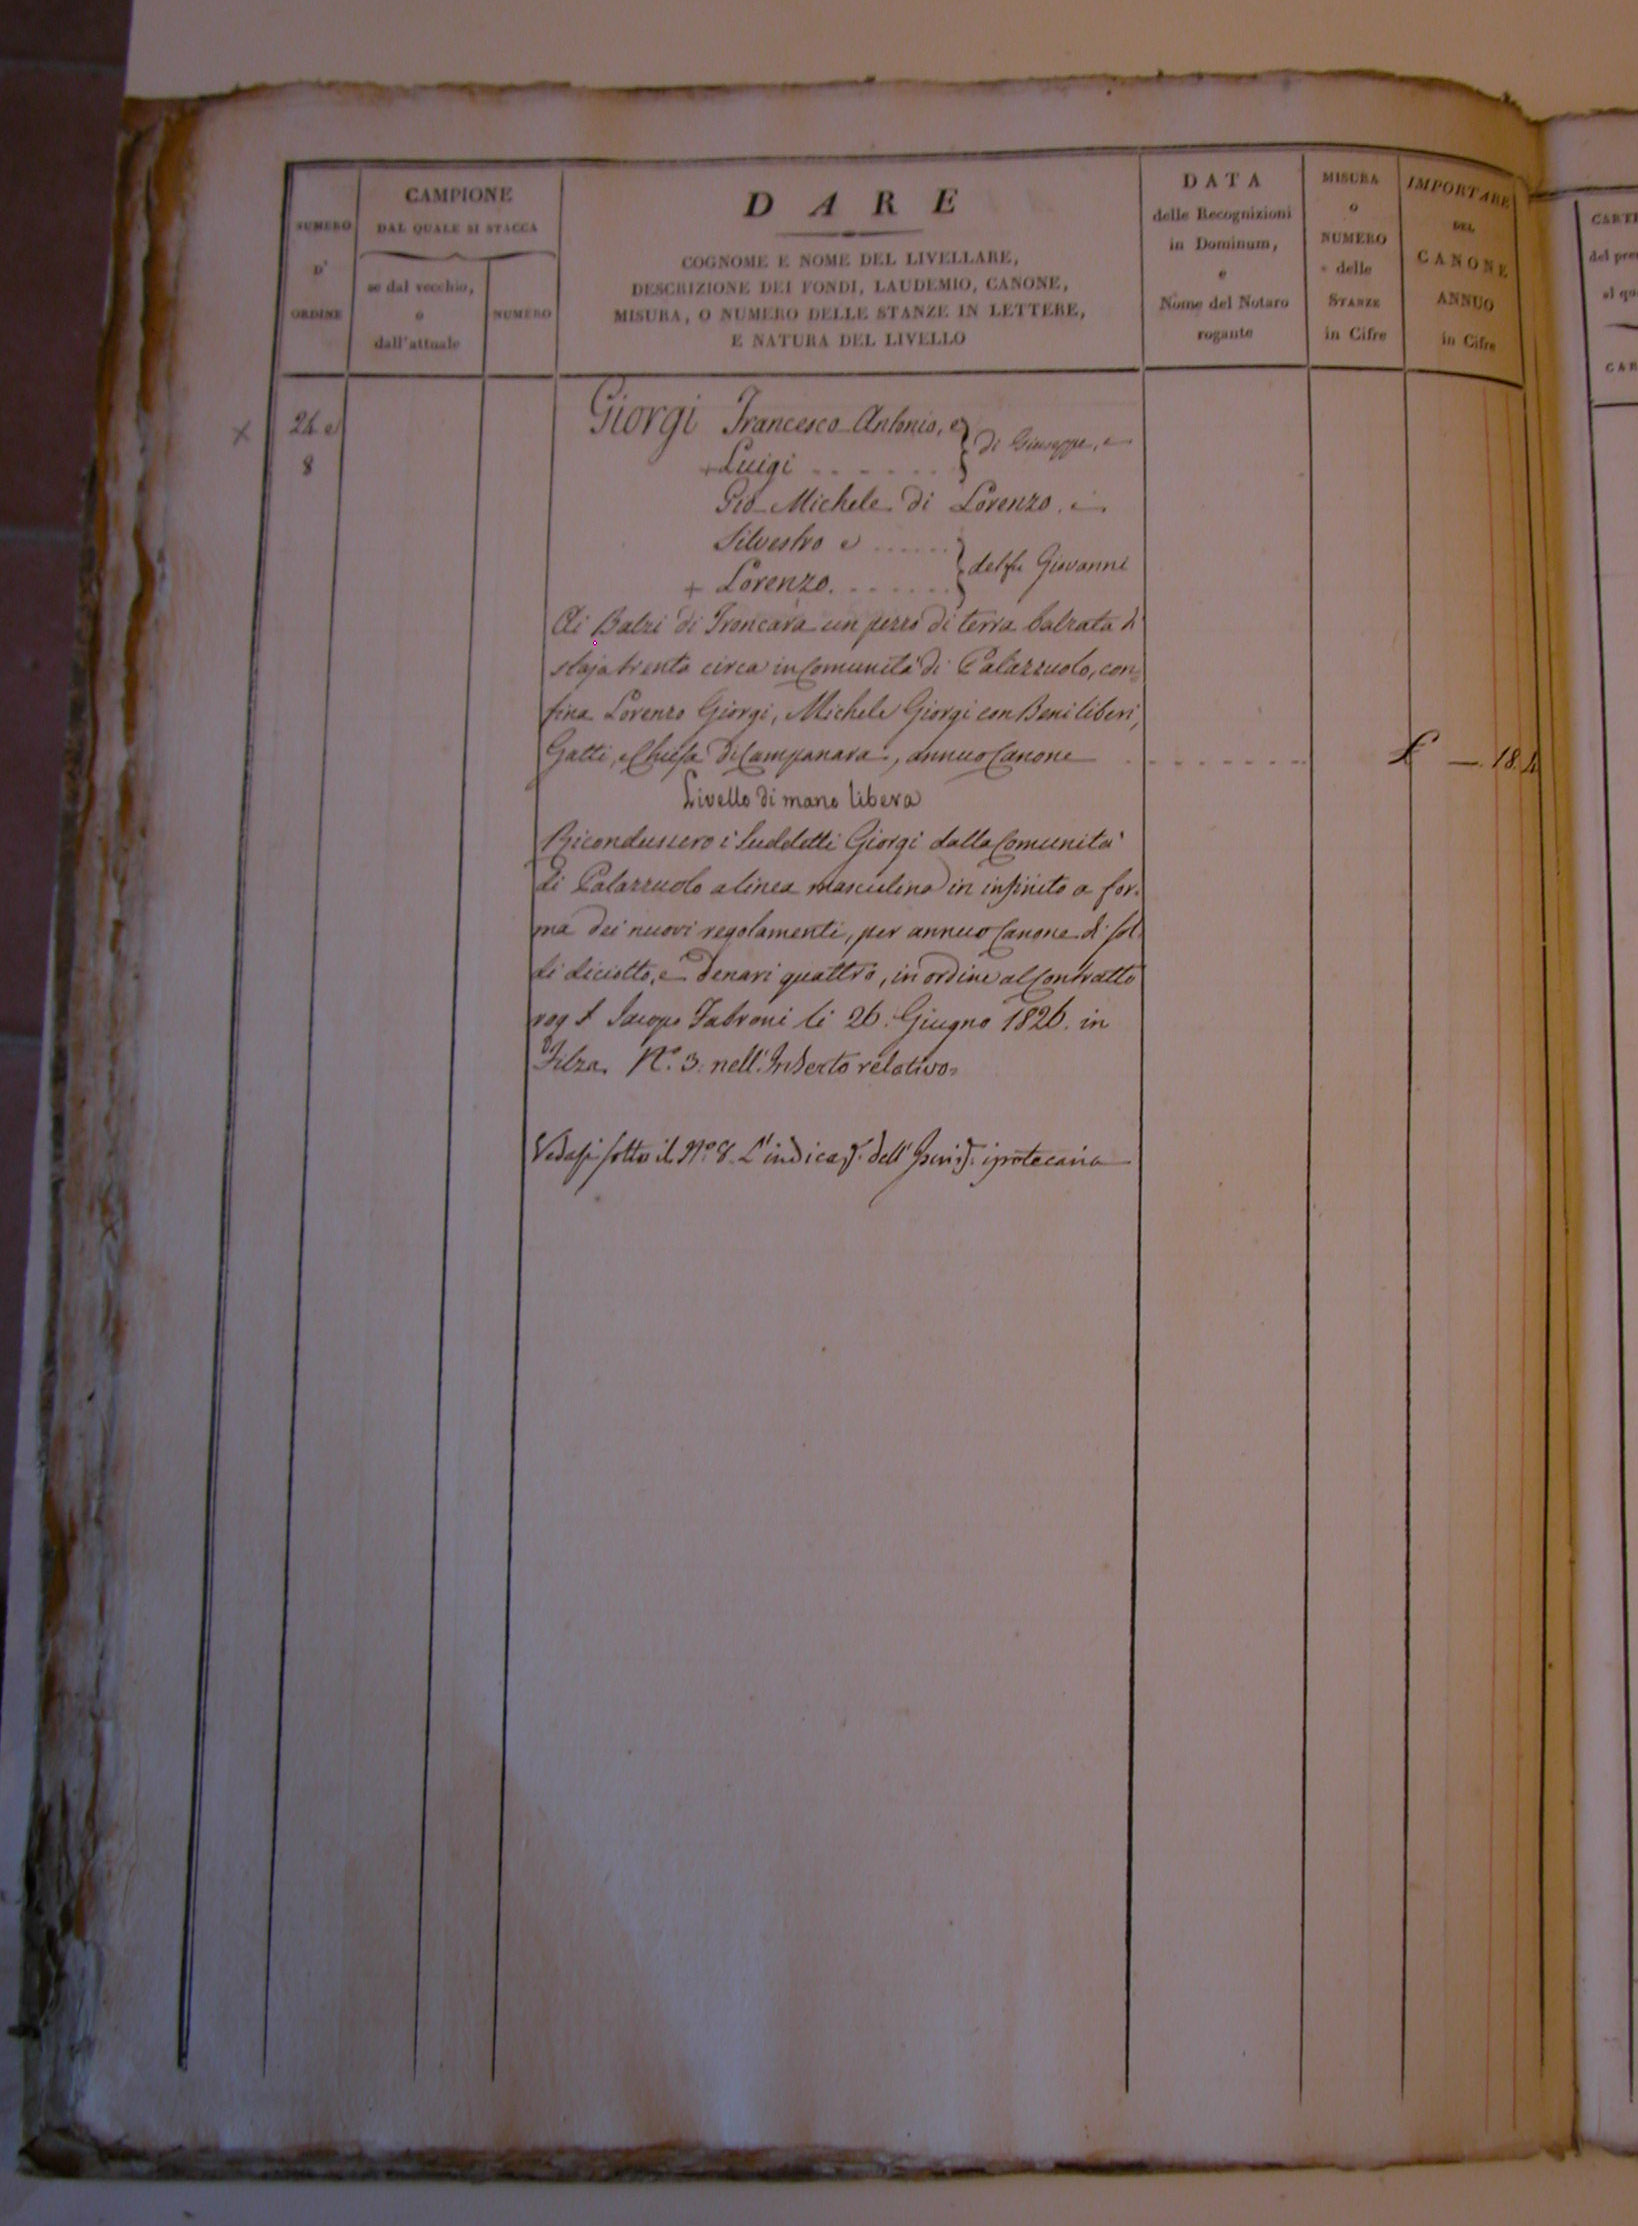 NUMERO
D'
ORDINE
CAMPIONE
DAL QUALE SI STACCA
se dal vecchio,
o
dall'attuale
NUMERO
DARE
COGNOME E NOME DEL LIVELLARE,
DESCRIZIONE DEI FONDI, LAUDEMIO, CANONE,
MISURA, O NUMERO DELLE STANZE IN LETTERE,
E NATURA DEL LIVELLO
DATA
delle Recognizioni
in Dominum,
e
Nome del Notaro
rogante
MISURA
o
NUMERO
delle
STANZE
in Cifre
IMPORTARE
DEL
CANONE
ANNUO
in Cifre
8
Giorgi Francesco Antonio, e
+ Luigi
di Giuseppe, e
Gio Michele di Lorenzo. e
Silvestro e
+ Lorenzo.
del fu Giovanni
Ai Balzi di Troncara un pezzo di terra balzata di
staja trenta circa in Comunità di Palazzuolo, con=
fina Lorenzo Giorgi, Michele Giorgi con Beni liberi,
Gatti, e Chiesa di Campanara, annuo Canone
£ —. 18. 4
Livello di mano libera
Ricondussero i Suddetti Giorgi dalla Comunità
di Palazzuolo a linea masculina in infinito a for=
ma dei nuovi regolamenti, per annuo Canone di Sol=
di diciotto, e denari quattro, in ordine al Contratto
rog Jacopo Fabroni li 26. Giugno 1826. in
Filza N.° 3. nell'Inserto relativo.
Vedasi sotto il N.° 8. L'indicaz. dell' Iscriz. ipotecaria
CARTE
CAR